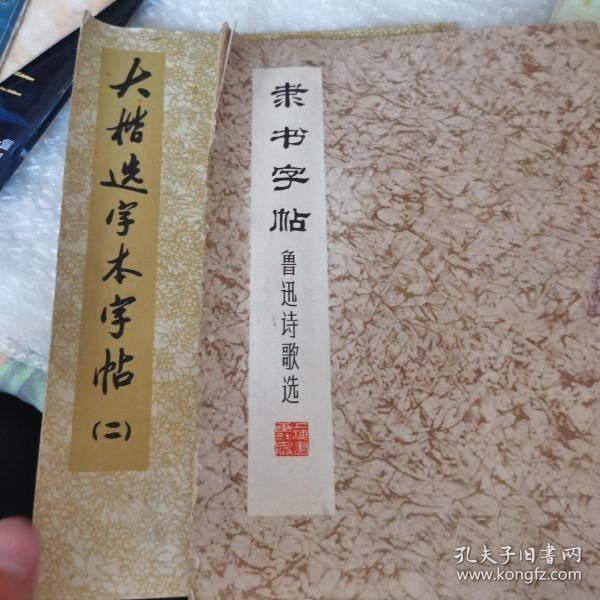 大楷选字本字帖
(二)
隶书字帖
鲁迅诗歌选
上海书画社
孔夫子旧书网
www.kongfz.com